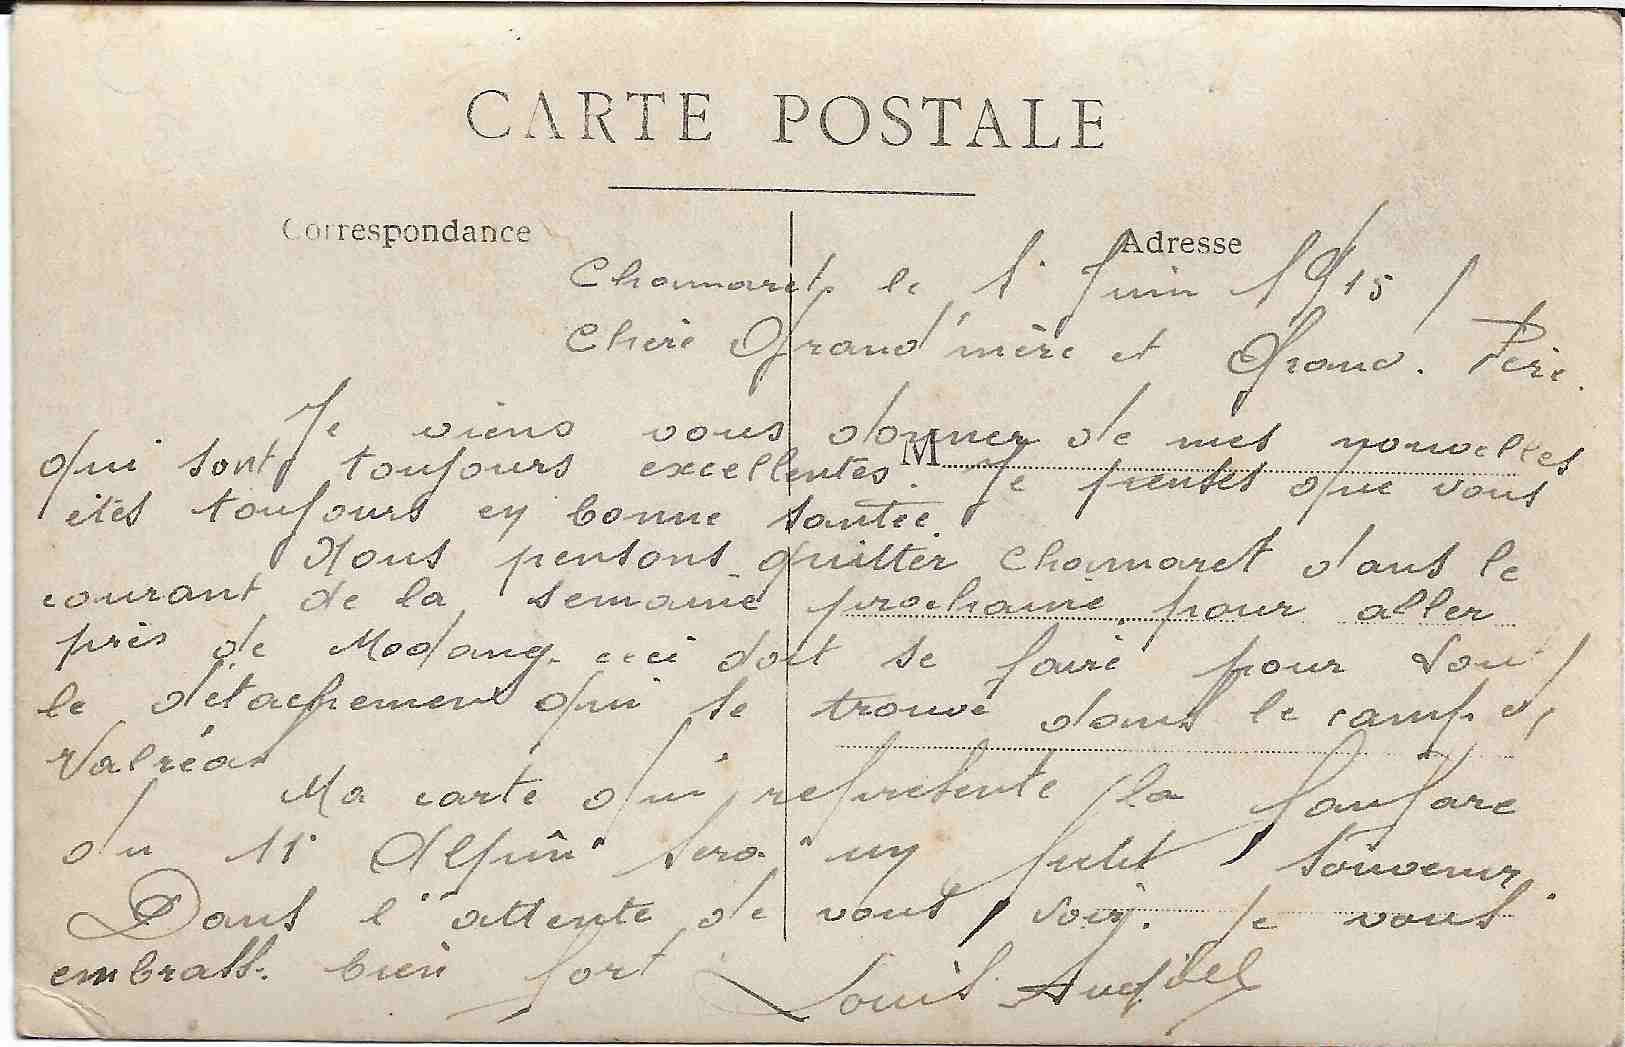 CARTE POSTALE
Correspondance
Adresse
Chamaret le 1 Juin 1915
Chère Grand'mère et Grand. Père.
Je viens vous donner de mes nouvelles
M
qui sont toujours excellentes. Je penses que vous
êtes toujours en bonne santée
Nous pensons quitter Chamaret dans le
courant de la semaine prochaine pour aller
près de Modang. ceci doit se faire pour tou
le détachement qui se trouve dans le camp d
Valréas
Ma carte qui représente la fanfare
du 11 Alpin sera un petit souvenir.
Dans l'attente de vous voir. Je vous
embrass. bien fort
Louis